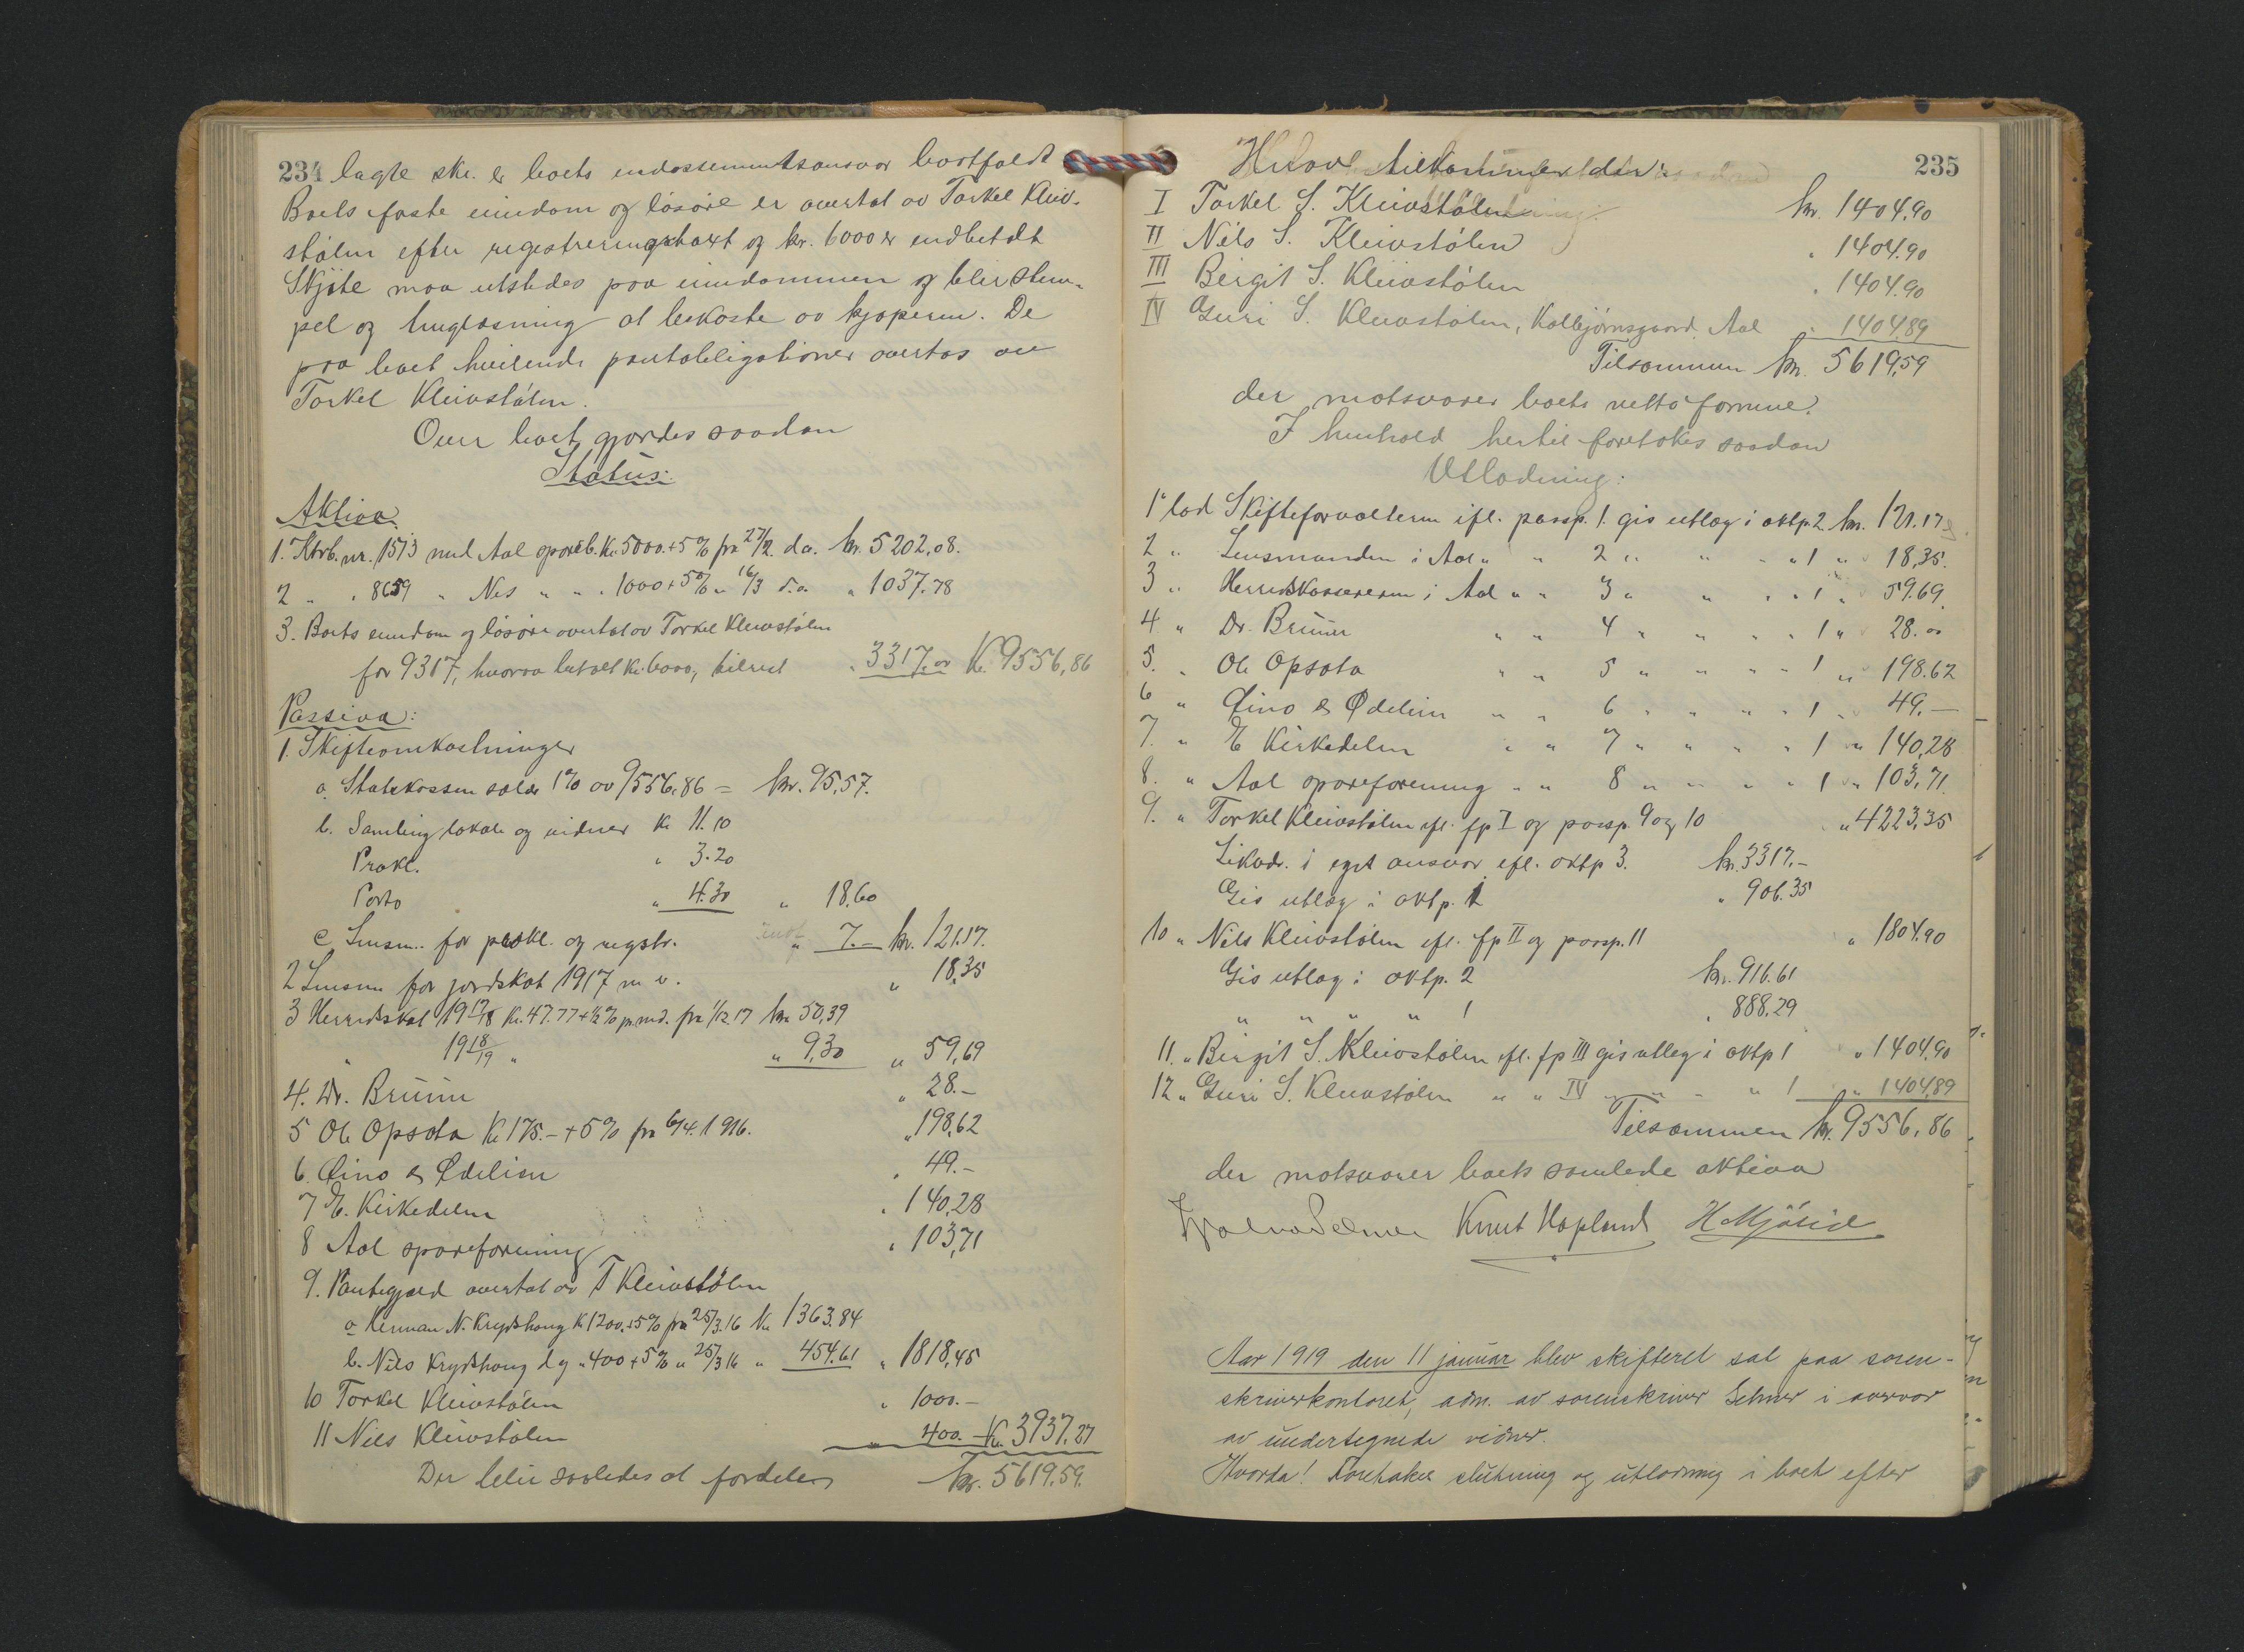 234 lagte skr. er boets endossementsansvar bortfaldt
Boets faste eiendom og løsøre er overtat av Torkel Kleiv-
stølen efter registreringstaxt og kr. 6000 er indbetalt
Skjøte maa utstedes paa eiendommen og blir stem-
pel og tinglæsning at bekoste av kjøperen. De
paa boet hvilende pantobligationer overtas av
Torkel Kleivstølen.
Over boet gjordes saadan
Status:
Aktiva.
1. Ktrb. nr. 1513 med Aal spareb. Kr. 5000 + 5% fra 27/2 d.a. kr. 5202,08.
2 " " 8659 " Nes " " " 1000 + 5% " 16/3 d.a. " 1037.78
3. Boets eiendom og løsøre overtat av Torkel Kleivstølen
for 9317, hvorav betalt kr. 6000, tilrest " 3317.00 Kr. 9556,86
Passiva:
1. Skifteomkostninger
a. Statskassen salær 1% av 9556,86 = kr. 95,57.
b. Samling lokale og vidner Kr 11.10
Prokl. " 3.20
Porto " 4.30 " 18.60
c. Lensm. for prokl. og regstr. " 7.— kr. 121.17.
2 Lensm for jordskat 1917 m v. " 18,35
3 Herredsskat 1917/18 Kr. 47.77 + ½% pr. md. fra 1/12 17 kr 50,39
" 1918/19 " " 9,30 " 59,69
4. Dr. Bruun " 28.–
5 Ole Opsata Kr 175.– + 5% fra 6/4. 1916. " 198,62
6. Lino & Ødelien " 49.–
7 E. Kirkedelen " 140,28
8 Aal spareforening " 103,71
9. Pantegjæld overtat av T Kleivstølen
a Herman N. Krydshaug Kr 1200 + 5% fra 25/3.16 Kr 1363.84
b. Nils Krydshaug d.y " 400 + 5% " 25/3 16 " 454.61 " 1818,45
10 Torkel Kleivstølen " 1000.–
11 Nils Kleivstølen " 400.– Kr. 3937,27
Der blir saaledes at fordele kr. 5619,59.
235
Herav tilkommer der:
I Torkel S. Kleivstølen kr. 1404,90
II Nils S. Kleivstølen " 1404.90
III Birgit S. Kleivstølen " 1404.90
IV Guri S. Kleivstølen, Kolbjørnsgaard, Aal " 1404,89
Tilsammen kr. 5619,59
der motsvarer boets netto formue.
I henhold hertil foretokes saadan
Utlodning:
1' lod Skifteforvalteren ifl. passp. 1. gis utlæg i aktp. 2 kr. 121.17
2 " Lensmanden i Aal " " 2 " " " " 1 " 18,35.
3 " Herredskassereren i Aal " " 3 " " " " 1 " 59.69
4 " Dr. Bruun " " 4 " " " " 1 " 28.00
5. " Ole Opsata " " 5 " " " " 1 " 198.62
6 " Lino & Ødelien " " 6 " " " " 1 " 49,—
7. " E Kirkedelen " " 7 " " " " 1 " 140,28
8. " Aal spareforening " " 8 " " " " 1 " 103,71
9. " Torkel Kleivstølen efl. fp I og passp. 9 og 10 " 4223,35
Likvdr. i eget ansvar efl. aktp 3. kr. 3317,–
Gis utlæg i aktp. 1 " 906.35
10 " Nils Kleivstølen efl. fp II og passp. 11 " 1804.90
Gis utlæg i aktp. 2 kr. 916.61
" " " " 1 " 888.29
11. " Birgit S. Kleivstølen efl. fp III gis utlæg i aktp 1 " 1404,90
12 " Guri S. Kleivstølen " " IV " " " " 1 " 1404,89
Tilsammen kr. 9556,86
der motsvarer boets samlede aktiva
Knut Hapland H Mjøsid
Aar 1919 den 11 januar blev skifteret sat paa soren-
skriverkontoret, adm. av sorenskriver Selmer i overvær
av undertegnede vidner.
Hvorda! Foretokes slutning og utlodning i boet efter